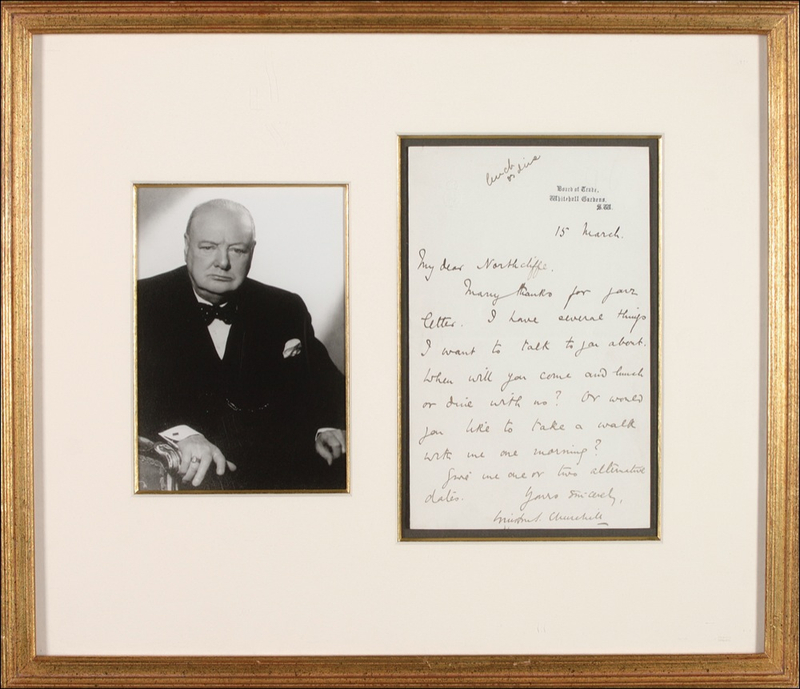 lunch
or dine
Board of Trade,
Whitehall Gardens,
S.W.
15 March.
My dear Northcliffe,
Many thanks for your
letter. I have several things
I want to talk to you about.
When will you come and lunch
or dine with us? Or would
you like to take a walk
with me one morning?
Give me one or two alternative
dates. Yours sincerely,
Winston S. Churchill